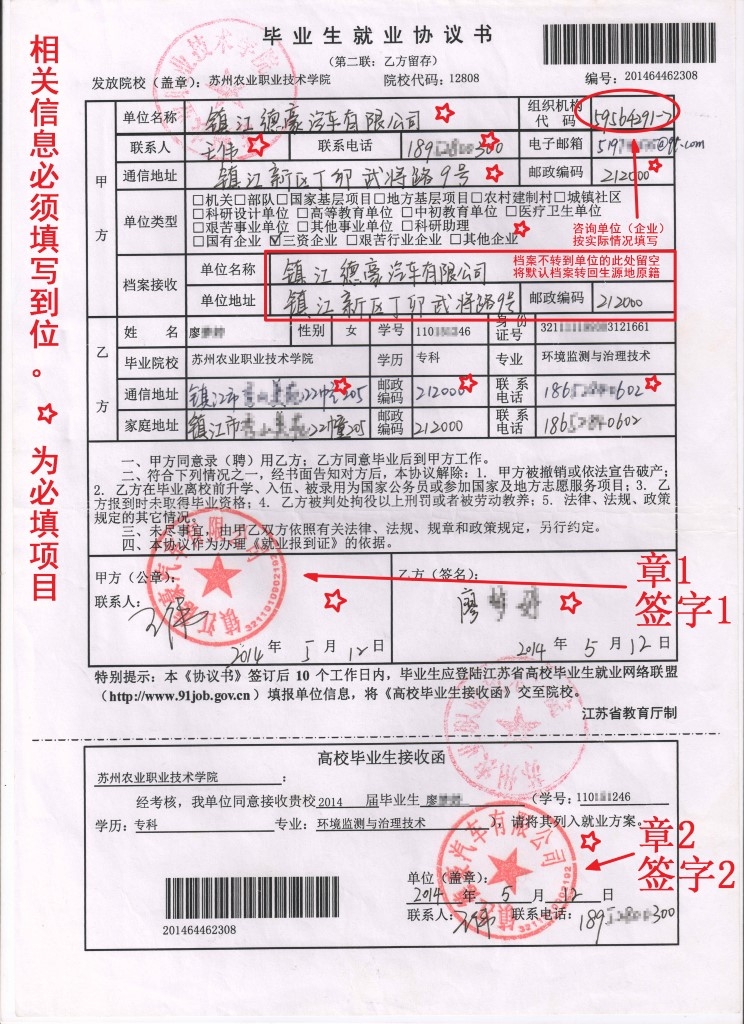 毕业生就业协议书
(第二联：乙方留存)
发放院校（盖章）：苏州农业职业技术学院 院校代码：12808 编号：201464462308
相关信息必须填写到位。☆为必填项目
甲方
单位名称 镇江德豪汽车有限公司 组织机构代码 59564291-7
联系人 王伟 联系电话 189 300 电子邮箱 519 @qq.com
通信地址 镇江新区丁卯武将路9号 邮政编码 212000
单位类型 □机关□部队□国家基层项目□地方基层项目□农村建制村□城镇社区
□科研设计单位 □高等教育单位 □中初教育单位 □医疗卫生单位
□艰苦事业单位 □其他事业单位 □科研助理
□国有企业 ☑三资企业 □艰苦行业企业 □其他企业
咨询单位（企业）
按实际情况填写
档案不转到单位的此处留空
将默认档案转回生源地原籍
档案接收 单位名称 镇江德豪汽车有限公司
单位地址 镇江新区丁卯武将路9号 邮政编码 212000
乙方
姓名 廖 性别 女 学号 110 246 身份证号 3211 3121661
毕业院校 苏州农业职业技术学院 学历 专科 专业 环境监测与治理技术
通信地址 镇江市 22幢205 邮政编码 212000 联系电话 1865 0602
家庭地址 镇江市 22幢205 邮政编码 212000 联系电话 1865 0602
一、甲方同意录（聘）用乙方；乙方同意毕业后到甲方工作。
二、符合下列情况之一，经书面告知对方后，本协议解除：1. 甲方被撤销或依法宣告破产；
2. 乙方在毕业离校前升学、入伍、被录用为国家公务员或参加国家及地方志愿服务项目；3. 乙
方报到时未取得毕业资格；4. 乙方被判处拘役以上刑罚或者被劳动教养；5. 法律、法规、政策
规定的其它情况。
三、未尽事宜，由甲乙双方依照有关法律、法规、规章和政策规定，另行约定。
四、本协议作为办理《就业报到证》的依据。
甲方（公章）： 乙方（签名）：
联系人： 王伟 廖
2014 年 5 月 12 日 2014 年 5 月 12 日
章1
签字1
特别提示：本《协议书》签订后 10 个工作日内，毕业生应登陆江苏省高校毕业生就业网络联盟
（http://www.91job.gov.cn）填报单位信息，将《高校毕业生接收函》交至院校。
江苏省教育厅制
高校毕业生接收函
苏州农业职业技术学院：
经考核，我单位同意接收贵校2014 届毕业生 廖 （学号：110 1246
学历：专科 专业：环境监测与治理技术 ），请将其列入就业方案。
章2
签字2
单位（盖章）：
2014 年 5 月 12 日
联系人：王伟 联系电话：189 300
201464462308